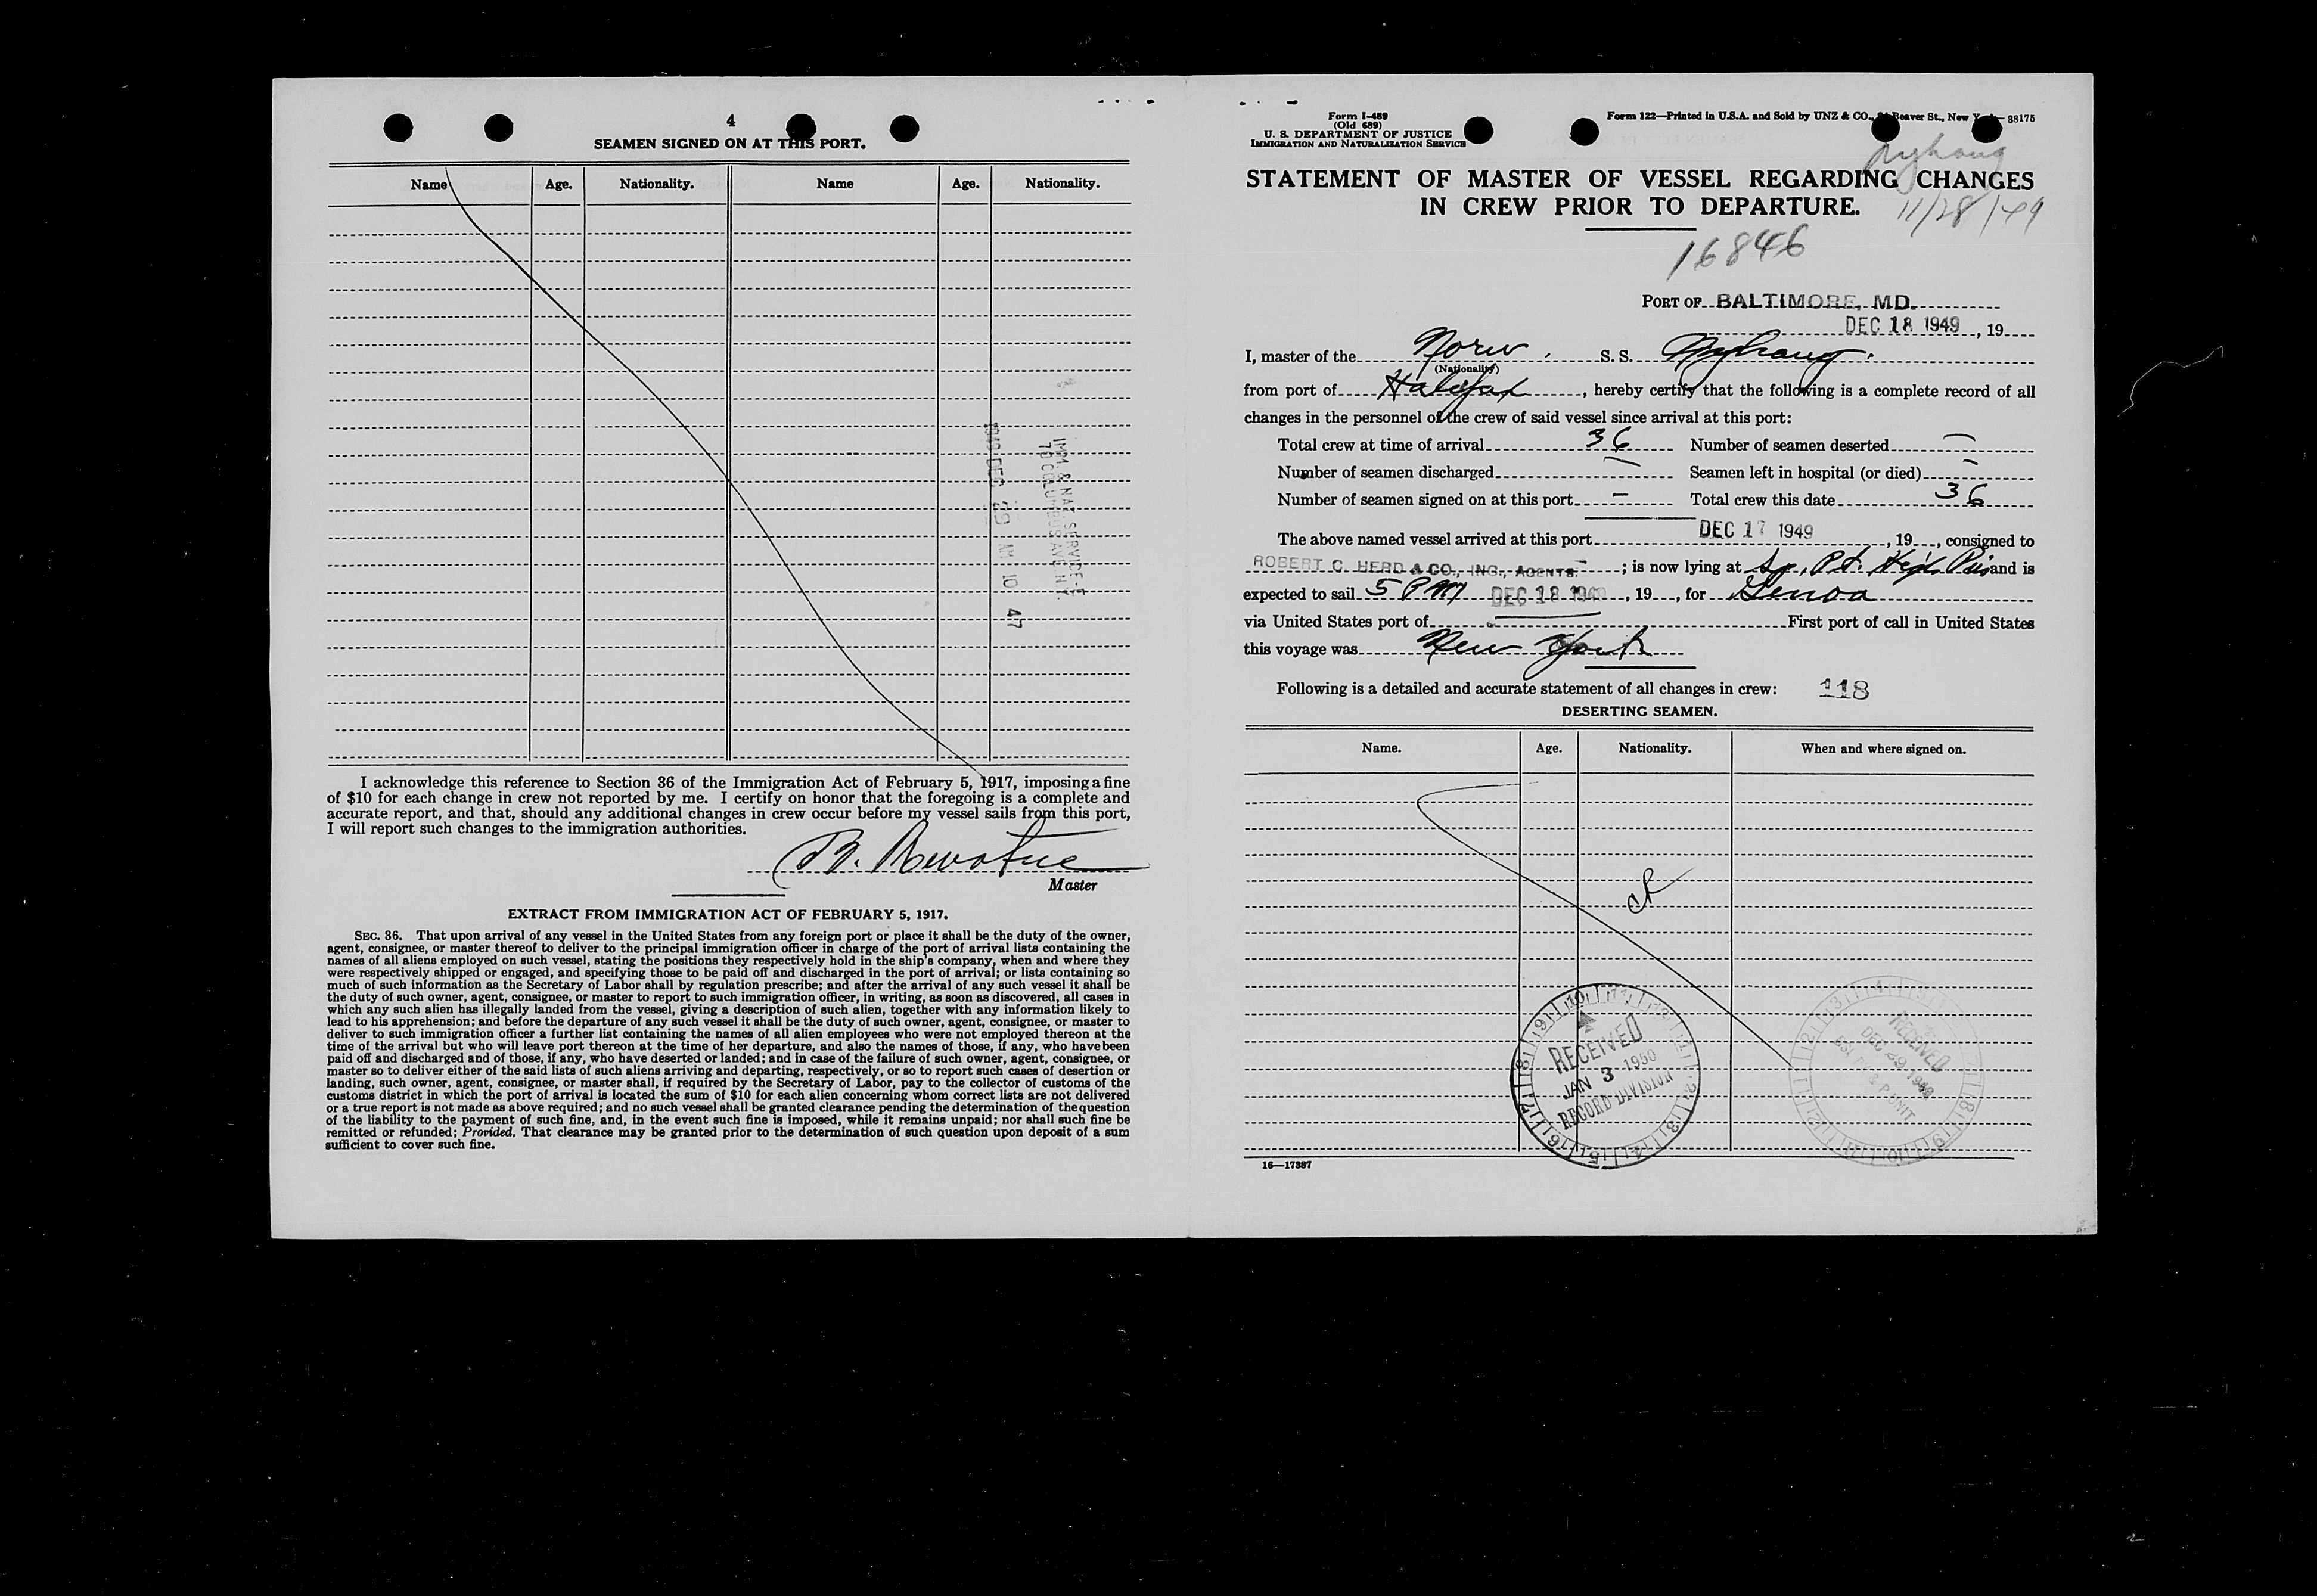 4
SEAMEN SIGNED ON AT THIS PORT.
Name Age. Nationality. Name Age. Nationality.
1949 DEC 29 AM 10 47
IMM. & NAT. SERVICE
70 COLUMBUS AVE N.Y.
I acknowledge this reference to Section 36 of the Immigration Act of February 5, 1917, imposing a fine
of $10 for each change in crew not reported by me. I certify on honor that the foregoing is a complete and
accurate report, and that, should any additional changes in crew occur before my vessel sails from this port,
I will report such changes to the immigration authorities.
Master
EXTRACT FROM IMMIGRATION ACT OF FEBRUARY 5, 1917.
SEC. 36. That upon arrival of any vessel in the United States from any foreign port or place it shall be the duty of the owner,
agent, consignee, or master thereof to deliver to the principal immigration officer in charge of the port of arrival lists containing the
names of all aliens employed on such vessel, stating the positions they respectively hold in the ship's company, when and where they
were respectively shipped or engaged, and specifying those to be paid off and discharged in the port of arrival; or lists containing so
much of such information as the Secretary of Labor shall by regulation prescribe; and after the arrival of any such vessel it shall be
the duty of such owner, agent, consignee, or master to report to such immigration officer, in writing, as soon as discovered, all cases in
which any such alien has illegally landed from the vessel, giving a description of such alien, together with any information likely to
lead to his apprehension; and before the departure of any such vessel it shall be the duty of such owner, agent, consignee, or master to
deliver to such immigration officer a further list containing the names of all alien employees who were not employed thereon at the
time of the arrival but who will leave port thereon at the time of her departure, and also the names of those, if any, who have been
paid off and discharged and of those, if any, who have deserted or landed; and in case of the failure of such owner, agent, consignee, or
master so to deliver either of the said lists of such aliens arriving and departing, respectively, or so to report such cases of desertion or
landing, such owner, agent, consignee, or master shall, if required by the Secretary of Labor, pay to the collector of customs of the
customs district in which the port of arrival is located the sum of $10 for each alien concerning whom correct lists are not delivered
or a true report is not made as above required; and no such vessel shall be granted clearance pending the determination of the question
of the liability to the payment of such fine, and, in the event such fine is imposed, while it remains unpaid; nor shall such fine be
remitted or refunded; Provided, That clearance may be granted prior to the determination of such question upon deposit of a sum
sufficient to cover such fine.
Form I-489
(Old 689)
U. S. DEPARTMENT OF JUSTICE
IMMIGRATION AND NATURALIZATION SERVICE
Form 122—Printed in U.S.A. and Sold by UNZ & CO., Beaver St., New 38175
Nyhaug
STATEMENT OF MASTER OF VESSEL REGARDING CHANGES
IN CREW PRIOR TO DEPARTURE.
11/28/49
16846
PORT OF BALTIMORE, MD.
DEC 18 1949, 19
I, master of the Norw. S. S. Nyhaug.
(Nationality)
from port of Halifax, hereby certify that the following is a complete record of all
changes in the personnel of the crew of said vessel since arrival at this port:
Total crew at time of arrival 36 Number of seamen deserted —
Number of seamen discharged — Seamen left in hospital (or died) —
Number of seamen signed on at this port — Total crew this date 36
The above named vessel arrived at this port DEC 17 1949, 19, consigned to
ROBERT C. HERD & CO., INC., AGENTS. ; is now lying at Sp. Pt. High Pier and is
expected to sail 5 PM DEC 18 1949, 19, for Genoa
via United States port of — First port of call in United States
this voyage was New York
Following is a detailed and accurate statement of all changes in crew: 118
DESERTING SEAMEN.
Name. Age. Nationality. When and where signed on.
RECEIVED
JAN 3 1950
RECORD DIVISION
RECEIVED
DEC 29 1949
16—17387